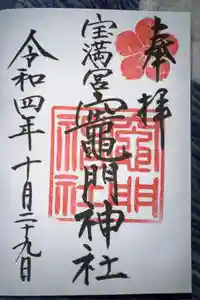 奉拝
宝満宮竈門神社
令和四年十月二十九日
竈門神社